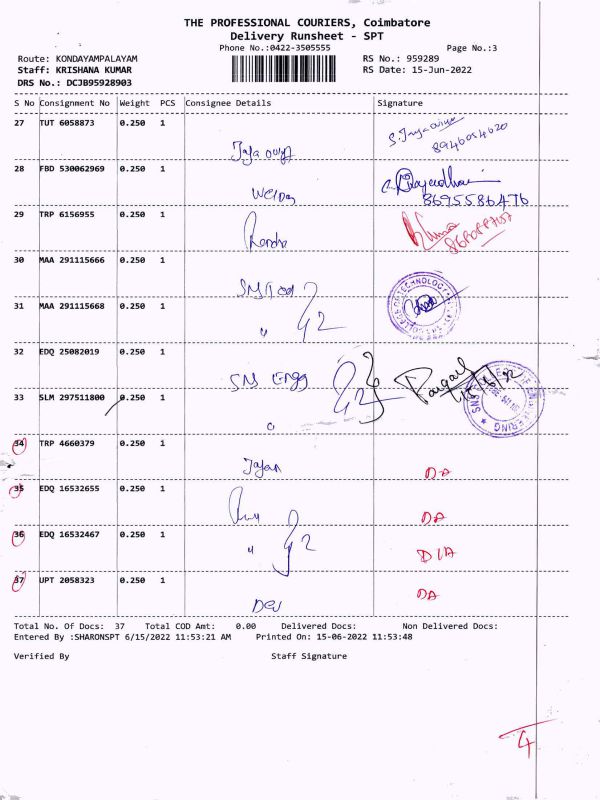 THE PROFESSIONAL COURIERS, Coimbatore
Delivery Runsheet - SPT
Phone No.:0422-3505555 Page No.:3
Route: KONDAYAMPALAYAM RS No.: 959289
Staff: KRISHANA KUMAR RS Date: 15-Jun-2022
DRS No.: DCJB95928903
S No Consignment No Weight PCS Consignee Details Signature
27 TUT 6058873 0.250 1
28 FBD 530062969 0.250 1
8695586476
29 TRP 6156955 0.250 1
30 MAA 291115666 0.250 1
31 MAA 291115668 0.250 1
" G2
32 EDQ 25082019 0.250 1
SNS Engg
33 SLM 297511800 0.250 1
34 TRP 4660379 0.250 1
Jajan DA
35 EDQ 16532655 0.250 1
DA
36 EDQ 16532467 0.250 1
" G2 DIA
37 UPT 2058323 0.250 1
DEV DA
Total No. Of Docs: 37 Total COD Amt: 0.00 Delivered Docs: Non Delivered Docs:
Entered By :SHARONSPT 6/15/2022 11:53:21 AM Printed On: 15-06-2022 11:53:48
Verified By Staff Signature
4